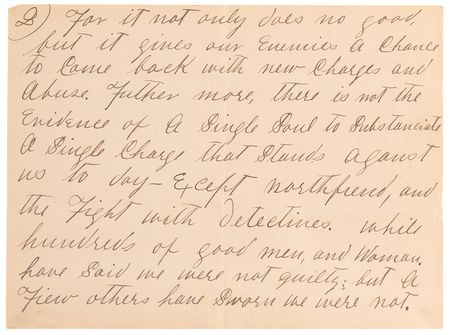 2) For it not only does no good,
but it gives our Enemies A Chance
to Come back with new Charges and
Abuse. Futher more, there is not the
Evidence of A Single Soul to Substanciate
A Single Charge that Stands against
us to day - Except northfiend, and
the Fight with Detectives. while
hundreds of good men, and Woman,
have Said we were not guilty; but A
Fiew others have Sworn we were not.